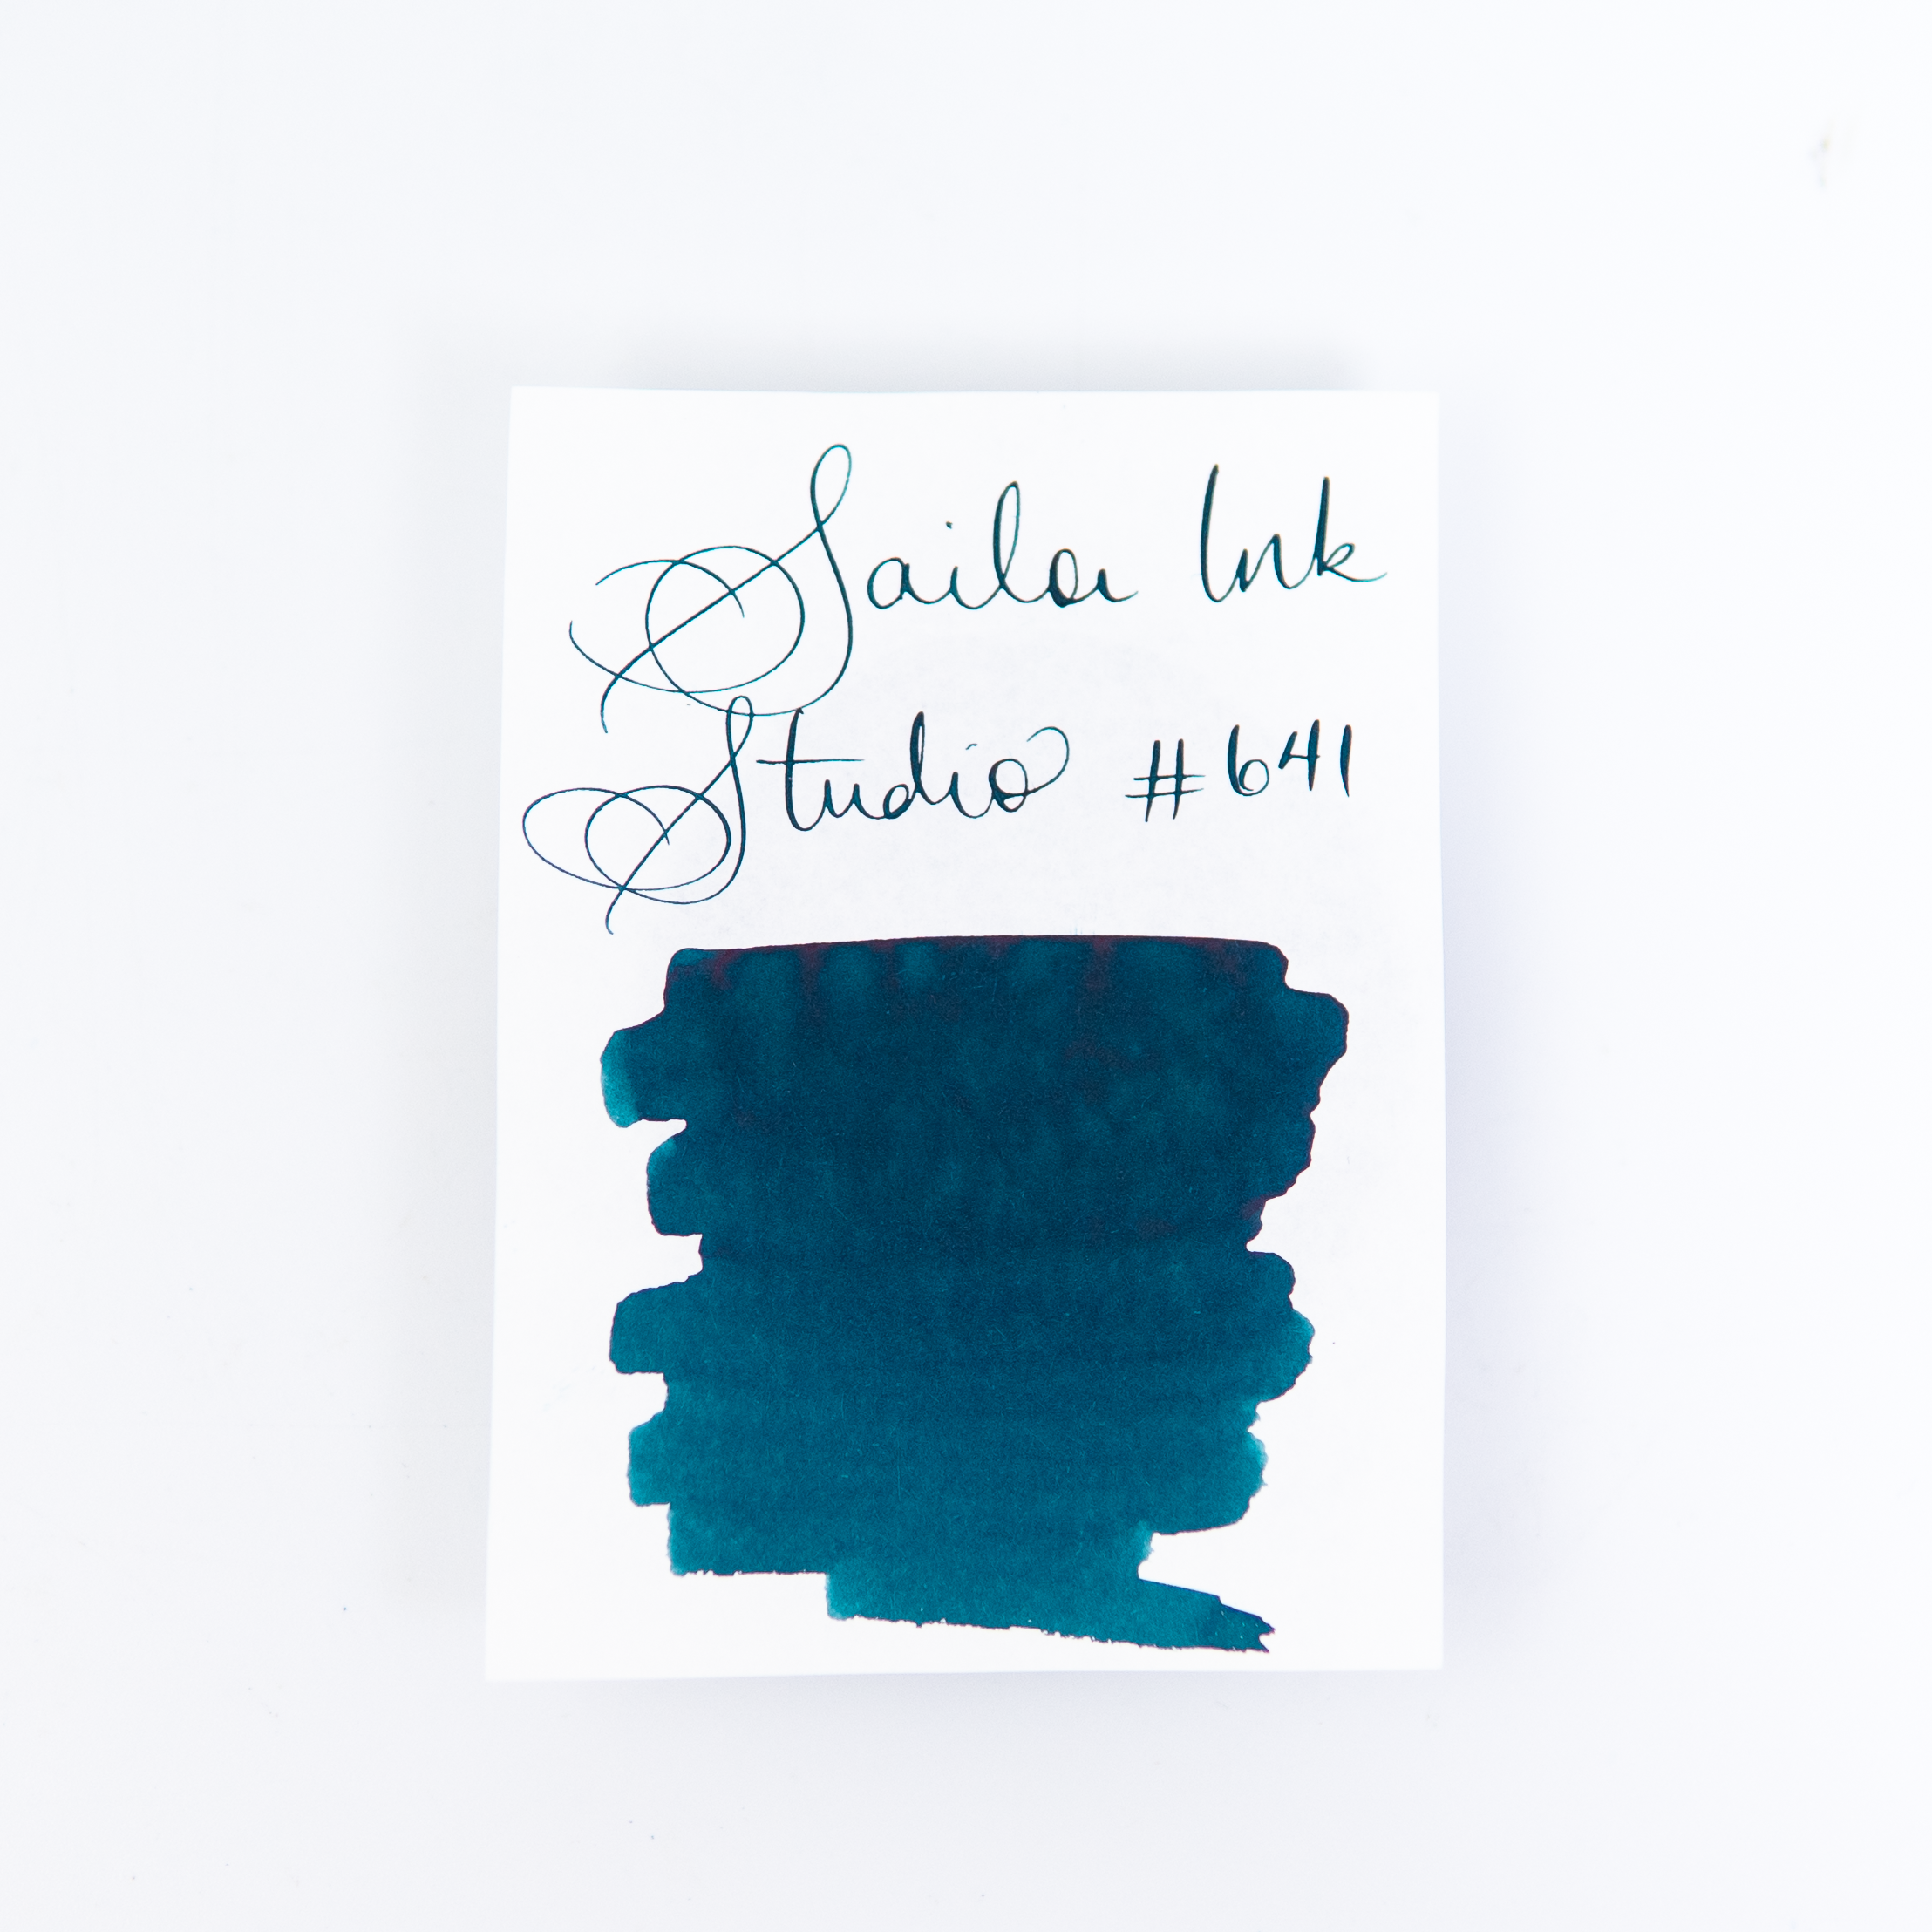 Sailor Ink
Studio #641